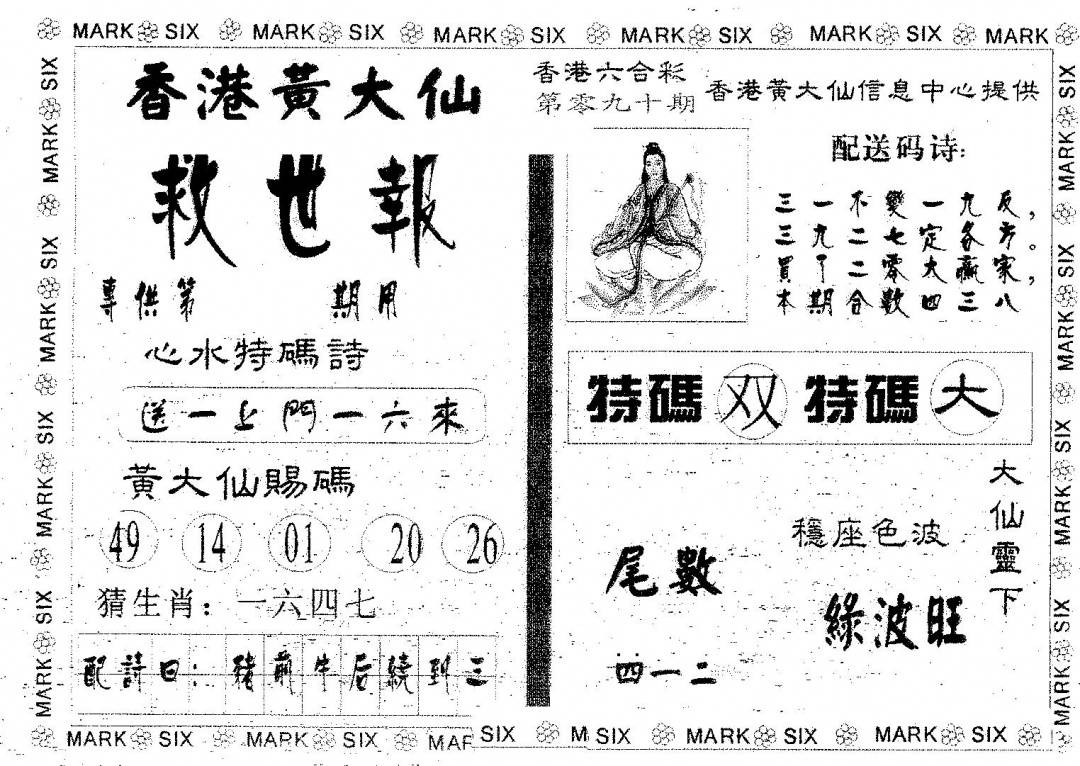 MARK SIX MARK SIX MARK SIX MARK SIX MARK SIX MARK
香港黃大仙
救世報
專供第 期用
心水特碼詩
送一上門一六來
黃大仙賜碼
49 14 01 20 26
猜生肖：一六四七
配詩曰：豬前牛后續到三
香港六合彩
第零九十期
香港黃大仙信息中心提供
配送码诗:
三一不變一九反，
三九二七定各方。
買了二零大贏家，
本期合數四三八
特碼 双 特碼 大
大仙靈下
穩座色波
綠波旺
尾數
四一二
MARK SIX MARK SIX MARK SIX MARK SIX
MARK SIX MARK SIX MARK SIX MARK SIX
MARK SIX MARK SIX MAR SIX M SIX MARK SIX MARK SIX